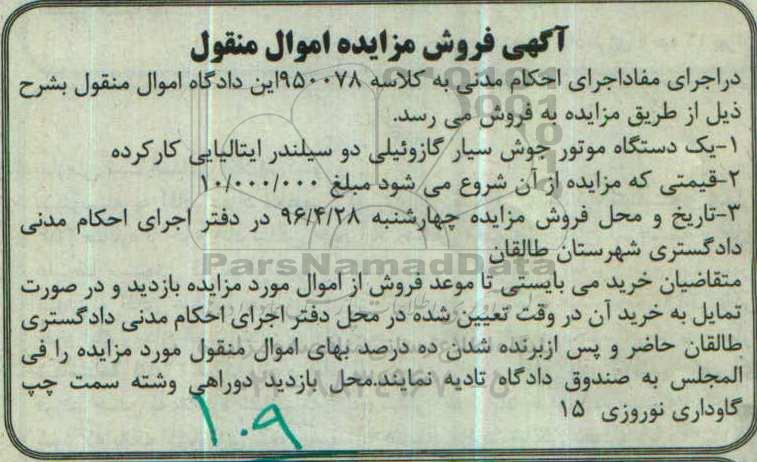 آگهی فروش مزایده اموال منقول
دراجرای مفاداجرای احکام مدنی به کلاسه ۹۵۰۰۷۸این دادگاه اموال منقول بشرح
ذیل از طریق مزایده به فروش می رسد.
۱-یک دستگاه موتور جوش سیار گازوئیلی دو سیلندر ایتالیایی کارکرده
۲-قیمتی که مزایده از آن شروع می شود مبلغ ۱۰/۰۰۰/۰۰۰
۳-تاریخ و محل فروش مزایده چهارشنبه ۹۶/۴/۲۸ در دفتر اجرای احکام مدنی
دادگستری شهرستان طالقان
ParsNamadData
متقاضیان خرید می بایستی تا موعد فروش از اموال مورد مزایده بازدید و در صورت
تمایل به خرید آن در وقت تعیین شده در محل دفتر اجرای احکام مدنی دادگستری
طالقان حاضر و پس ازبرنده شدن ده درصد بهای اموال منقول مورد مزایده را فی
المجلس به صندوق دادگاه تادیه نمایند.محل بازدید دوراهی وشته سمت چپ
گاوداری نوروزی ۱۵
۱۰۹